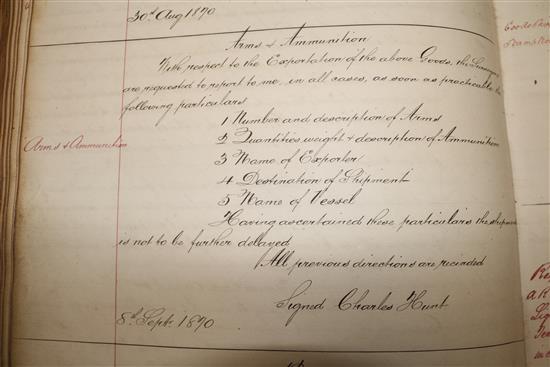 30th Augt 1870
Arms & Ammunition
With respect to the Exportation of the above Goods, the
are requested to report to me, in all cases, as soon as practicable the
following particulars
1 Number and description of Arms
Arms & Ammunition
2 Quantities weight & description of Ammunition
3 Name of Exporter
4 Destination of Shipment
5 Name of Vessel
Having ascertained these particulars the shipment
is not to be further delayed
All previous directions are recinded
Signed Charles Hunt
8th Septr 1870